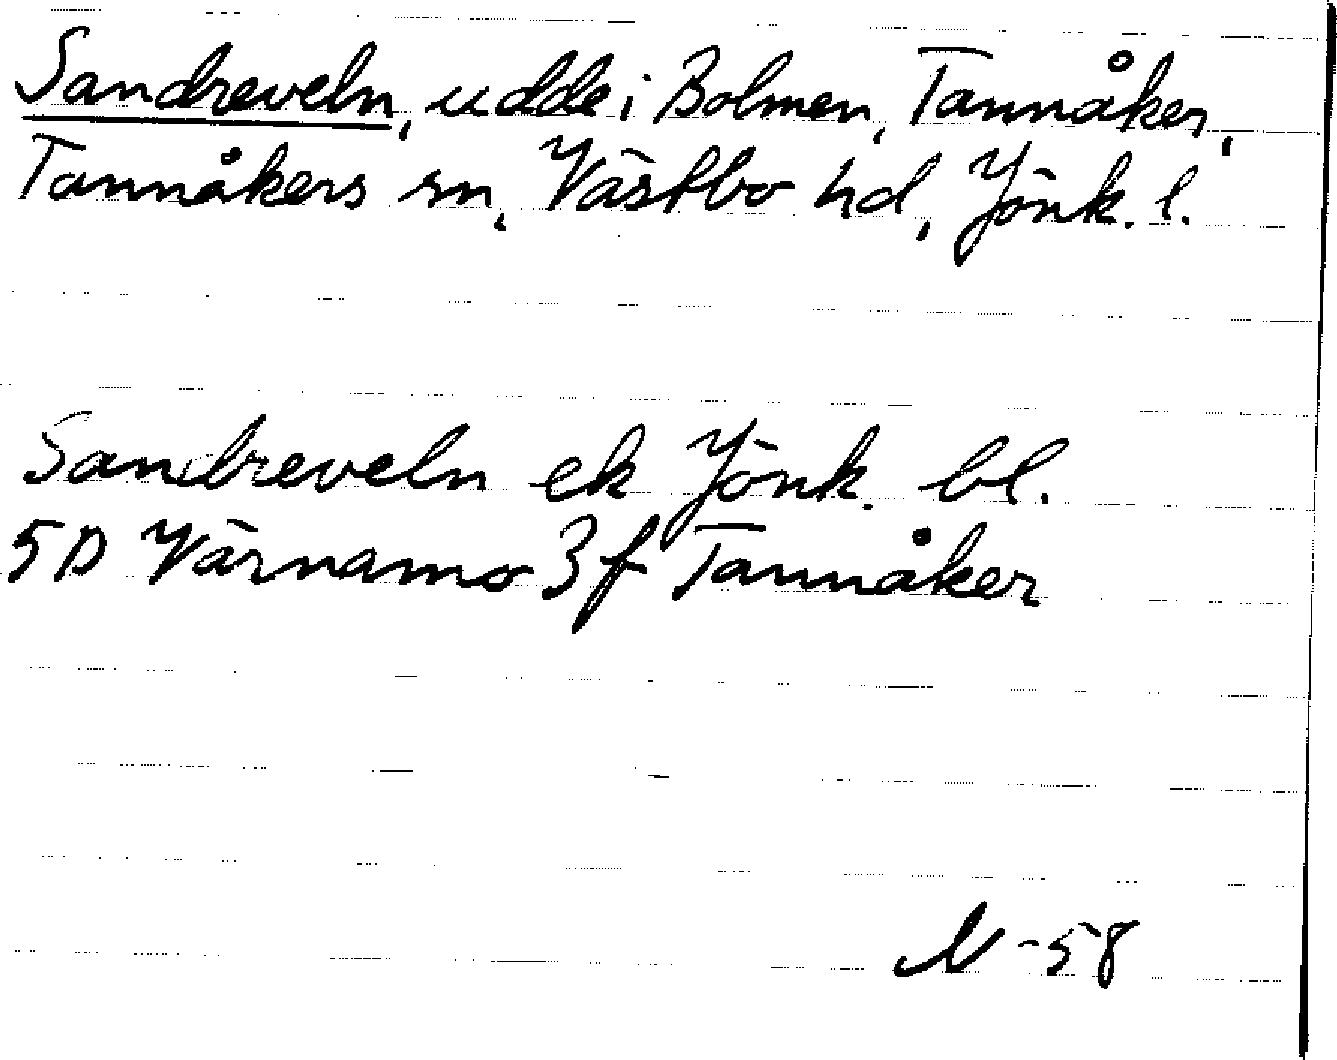 Sandreveln, udde i Bolmen, Tannåker,
Tannåkers sn, Västbo hd, Jönk. l.
Sandreveln ek Jönk. bl.
5D Värnamo 3f Tannåker
N -58